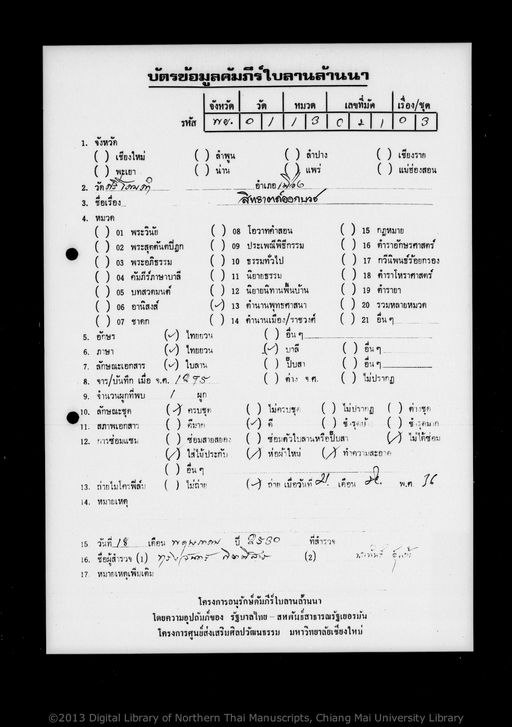 บัตรข้อมูลคัมภีร์ใบลานล้านนา
จังหวัด วัด หมวด เลขที่มัด เรื่อง/ชุด
รหัส พย. 0 1 1 3 0 2 1 0 3
1. จังหวัด
( ) เชียงใหม่ ( ) ลำพูน ( ) ลำปาง ( ) เชียงราย
( ) พะเยา ( ) น่าน ( ) แพร่ ( ) แม่ฮ่องสอน
2. วัด อำเภอ เมือง
3. ชื่อเรื่อง สิทธาตถ์ออกบวช
4. หมวด
( ) 01 พระวินัย ( ) 08 โอวาทคำสอน ( ) 15 กฎหมาย
( ) 02 พระสุตตันตปิฎก ( ) 09 ประเพณีพิธีกรรม ( ) 16 ตำราอักษรศาสตร์
( ) 03 พระอภิธรรม ( ) 10 ธรรมทั่วไป ( ) 17 กวีนิพนธ์ร้อยกรอง
( ) 04 คัมภีร์ภาษาบาลี ( ) 11 นิยายธรรม ( ) 18 ตำราโหราศาสตร์
( ) 05 บทสวดมนต์ ( ) 12 นิยายนิทานพื้นบ้าน ( ) 19 ตำรายา
( ) 06 อานิสงส์ (✓) 13 ตำนานพุทธศาสนา ( ) 20 รวมหลายหมวด
( ) 07 ชาดก ( ) 14 ตำนานเมือง/ราชวงศ์ ( ) 21 อื่น ๆ
5. อักษร (✓) ไทยยวน ( ) อื่น ๆ
6. ภาษา (✓) ไทยยวน (✓) บาลี ( ) อื่น ๆ
7. ลักษณะเอกสาร (✓) ใบลาน ( ) ปั๊บสา ( ) อื่น ๆ
8. จาร/บันทึก เมื่อ จ.ศ. 1295 ( ) ต่าง จ.ศ. ( ) ไม่ปรากฏ
9. จำนวนผูกที่พบ 1 ผูก
10. ลักษณะชุด (✓) ครบชุด ( ) ไม่ครบชุด ( ) ไม่ปรากฏ ( ) ต่างชุด
11. สภาพเอกสาร ( ) ดีมาก (✓) ดี ( ) ชำรุด ( ) ชำรุดมาก
12. การซ่อมแซม ( ) ซ่อมสายสยอง ( ) ซ่อมตัวใบลานหรือปั๊บสา (✓) ไม่ได้ซ่อม
(✓) ใส่ไม้ประกับ (✓) ห่อผ้าใหม่ (✓) ทำความสะอาด
( ) อื่น ๆ
13. ถ่ายไมโครฟิล์ม ( ) ไม่ถ่าย (✓) ถ่าย เมื่อวันที่ 21 เดือน พ.ศ. 36
14. หมายเหตุ
15. วันที่ 18 เดือน พฤษภาคม ปี 2530 ที่สำรวจ
16. ชื่อผู้สำรวจ (1) (2)
17. หมายเหตุเพิ่มเติม
โครงการอนุรักษ์คัมภีร์ใบลานล้านนา
โดยความอุปถัมภ์ของ รัฐบาลไทย - สหพันธ์สาธารณรัฐเยอรมัน
โครงการศูนย์ส่งเสริมศิลปวัฒนธรรม มหาวิทยาลัยเชียงใหม่
©2013 Digital Library of Northern Thai Manuscripts, Chiang Mai University Library